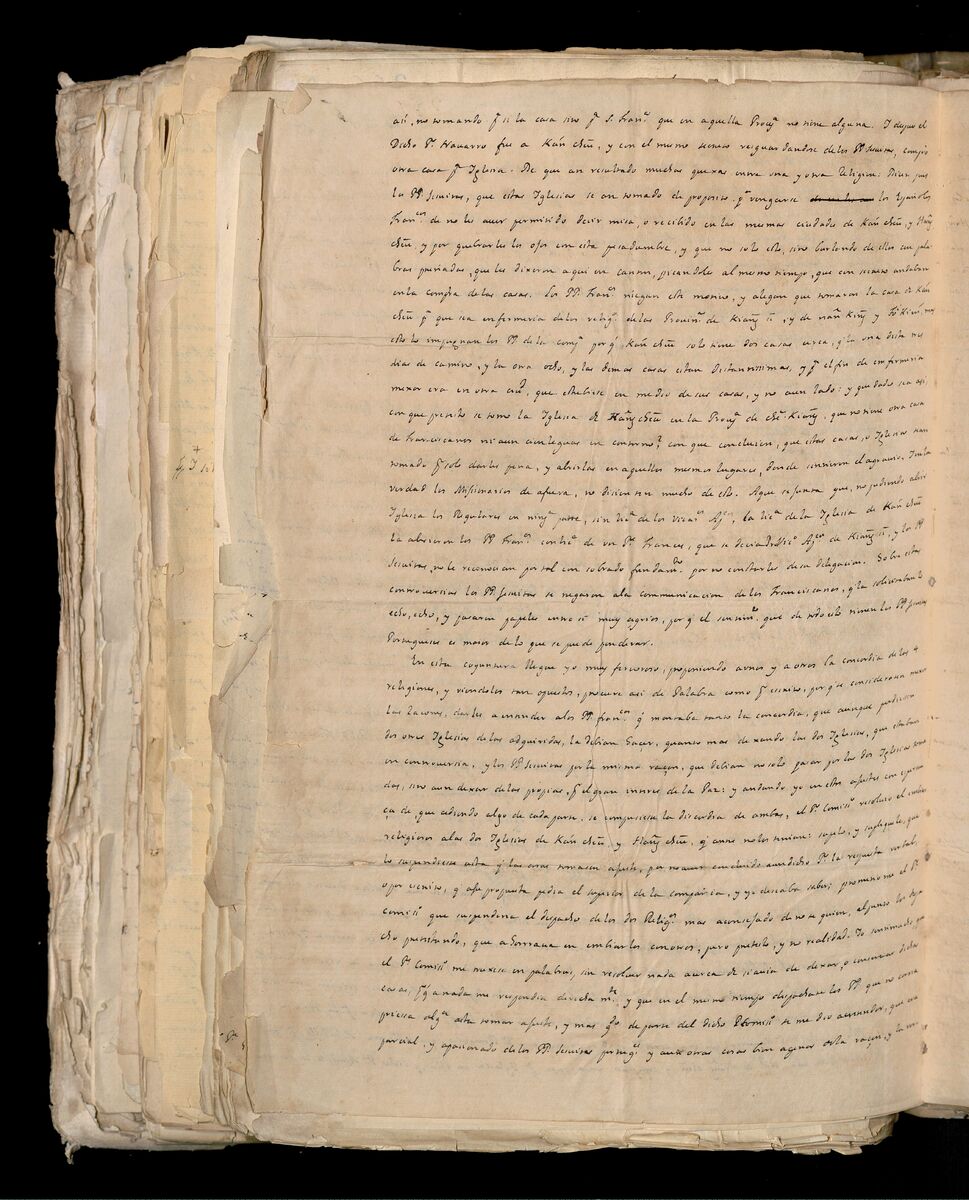 asi, no tomando pª si la casa sino pª S. Franco que en aquella Proua no tiene alguna. I despues el
Dicho Pe Navarro fue a Kán cheu, y con el mesmo secreto resguardandose de los PP. Jesuitas, compro
otra casa pª Iglesia. De que an resultado muchas quexas entre una y otra Religion: Dicen pues
los PP. Jesuitas, que estas Iglesias se an tomado de proposito, pª vengarse los Españoles
Francos de no les auer permitido decir misa, o recibido en las mesmas ciudades de Kán cheu, y Hañg
cheu, y por quebrarles los ojos con esta pesadumbre, y que no solo esto, sino burlando de ellos con pala
bras preñadas, que les dixeron aqui en Canton, picandoles al mesmo tiempo, que con secreto andaban
en la compra de las casas. Los PP. Francos niegan este motiuo, y alegan que tomaron la casa de Kán
cheu pª que sea enfermeria de los religos de las Prouinas de Kiañg si, y de nañ Kiñg y Fò Kien: mas
esto lo impugnan los PP. de la Compa porq̃ Kán cheu solo tiene dos casas cerca, q̃ la una dista tres
dias de camino, y la otra ocho, y las demas casas estan distantissimas, y pª el fin de enfermeria
mexor era en otra ciud, que estubiese en medio de sus casas, y no a un lado: y que dado sea asi,
con que pretexto se tomo la Iglesia de Hañg cheu en la Proua de che Kiañg, que no tiene otra casa
de Franciscanos ni aun cien leguas en contorno? con que concluien, que estas casas, o Iglesias san
tomado pª solo darles pena, y abiertas en aquellos mesmos lugares, donde sintieron el agrauio. I en la
verdad los Missionarios de afuera, no disienten mucho de esto. A que se junta que, no pudiendo abrir
Iglesia los Regulares en ninga parte, sin lica de los Vicars Apcos, la lica de la Iglesia de Kán cheu
la abrieron los PP. Francos con lica de un Pe Frances, que se decia Vico Apco de Kiañg si, y los PP.
Jesuitas, no le reconocian por tal con sobrado fundamto por no constarles de su delegacion. Sobre estas
controuersias los PP. Jesuitas se negaron a la communicacion de los Franciscanos, y la solicitaban
echo, echo, y pasaron papeles entre si muy agrios, porq̃ el sentimto que de todo esto tienen los PP. Jesuitas
Portugueses es maior de lo que se puede ponderar.
En esta coyuntura llegue yo muy feruoroso, proponiendo a unos y a otros la concordia de las 4
religiones, y viendolos tan opuestos, procure asi de Palabra como pr escrito, porq̃ se consideraran mexor
las raçones, darles a entender a los PP. francos q̃ montaba tanto la concordia, que aunque perdiesen
dos otras Iglesias de las adquiridas, la debian hacer, quanto mas dexando las dos Iglesias, que estaban
en controuersia, y los PP. Jesuitas por la misma raçon, que debian no solo pasar por las dos Iglesias toma
das, sino aun dexar de las propias, pr el gran interes de la Paz: y andando yo en estos ajustes con esperan
ça de, que cediendo algo de cada parte, se compusiesse la discordia de ambas, el Pe Comiso resoluio el embiar
religiosos a las dos Iglesias de Kán cheu, y Hañg cheu, q̃ antes no los tenian: supelo, y supliquele, que
lo suspendiesse asta q̃ las cosas tomasen ajuste, por no auer embiado aun dicho Pe la respuesta verbal,
o por escrito, q̃ a su propuesta pedia el superior de la compañia, y yo deseaba saber; prometiome el Pe
Comiso que suspenderia el despacho de los dos Religos mas aconsejado de no se quien, al punto los despa
cho pretextando, que ahorraua en embiarlos con otros; puro pretexto, y no realidad. Io sintiendo que
el Pe Comiso me tuxese en palabras, sin resoluer nada acerca de si auia de dexar, o conseruar dichas
casas, pq̃ a nada me respondia derechamte y que en el mesmo tiempo despachase los PP. que no corria
priessa alga asta tomar ajuste, y mas qdo de parte del dicho Pe Comiso se me dio a entender, que era
parcial, y apasionado de los PP. Jesuitas portugs y aun otras cosas bien agenas de la raçon, y la